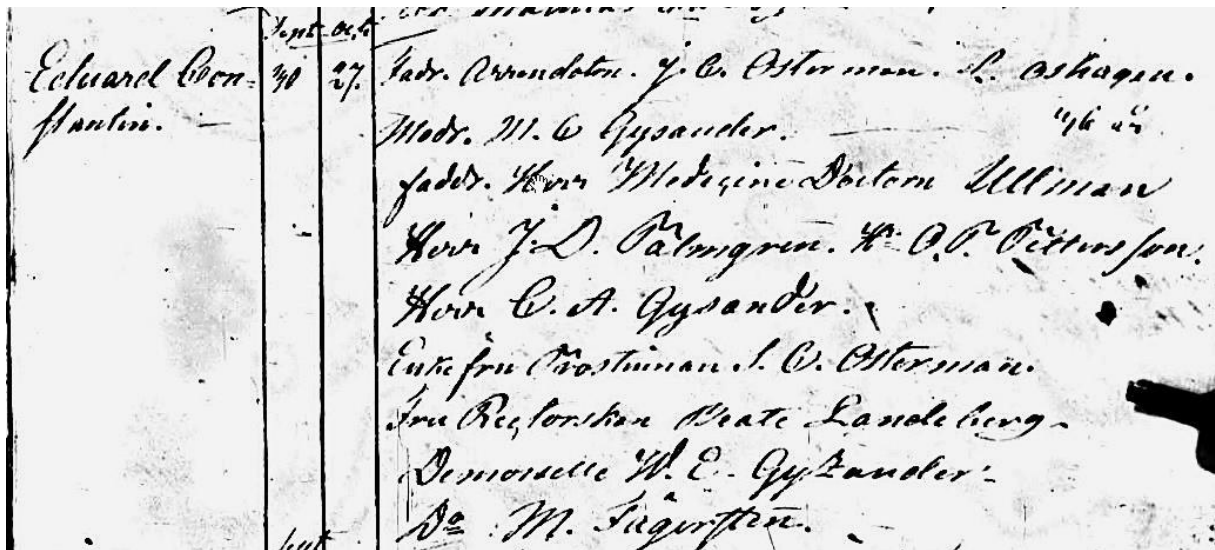 Sept Oct
Eduard Con- 30 27. Fadr. Arrendatorn. J. C. Osterman. L. Oshagen.
stantin. Modr. M. C Gysander. 46 år
faddr. Herr Medicine Doctorn Ullman
Herr J. D. Palmgren. Hr O. P. Pettersson.
Herr C. A. Gysander.
Enkefru Prostinnan S. C. Osterman.
Fru Rectorskan Beate Landeberg.
Demoiselle W. E. Gyzander.
Do M. Fagersten.
Sept